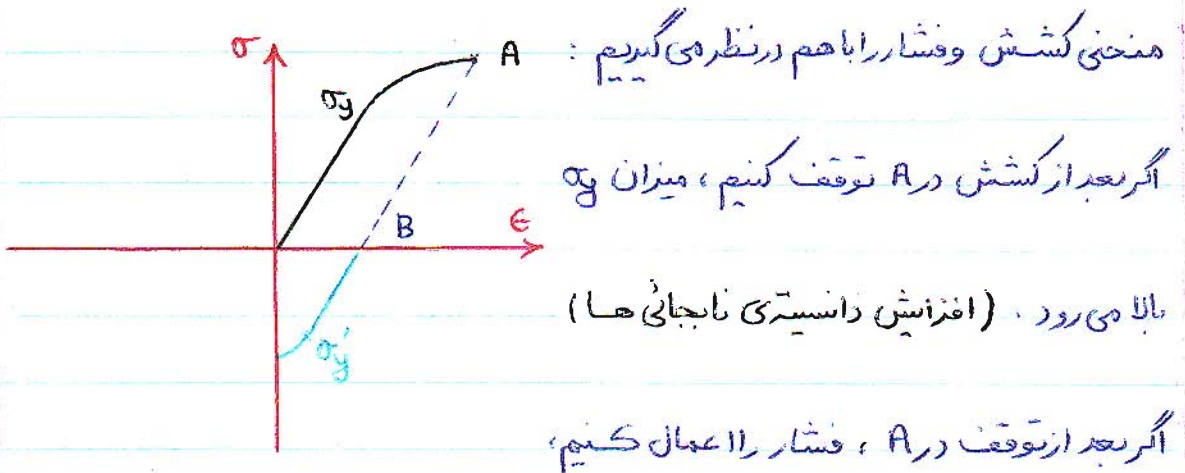 منحنی کشش و فشار را با هم در نظر می گیریم :
σ
A
σy
اگر بعد از کشش در A توقف کنیم ، میزان σy
B
ϵ
بالا می رود . (افزایش دانسیته‌ی نابجائی ها)
σ'y
اگر بعد از توقف در A ، فشار را اعمال کنیم،